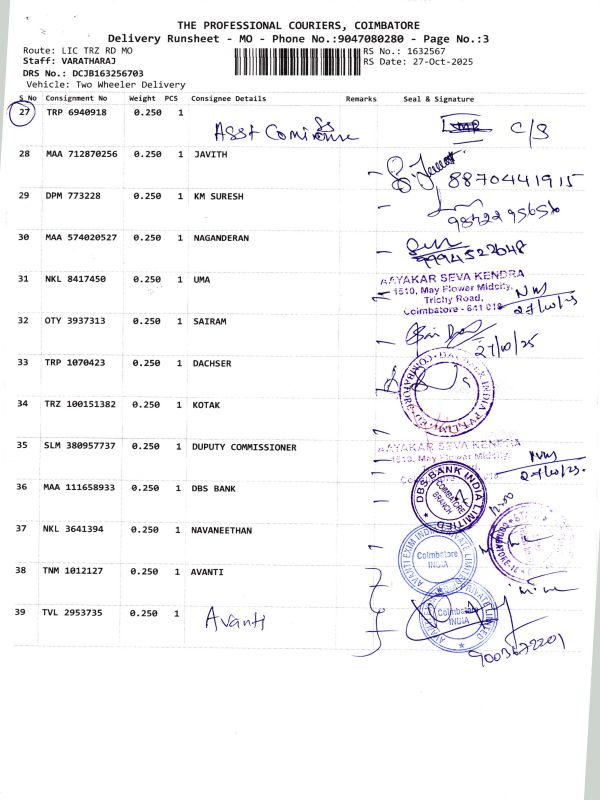 THE PROFESSIONAL COURIERS, COIMBATORE
Delivery Runsheet - MO - Phone No.:9047080280 - Page No.:3
Route: LIC TRZ RD MO
RS No.: 1632567
Staff: VARATHARAJ
RS Date: 27-Oct-2025
DRS No.: DCJB163256703
Vehicle: Two Wheeler Delivery
S_No Consignment No Weight PCS Consignee Details Remarks Seal & Signature
27 TRP 6940918 0.250 1 Asst C/S
28 MAA 712870256 0.250 1 JAVITH
8870441915
29 DPM 773228 0.250 1 KM SURESH
30 MAA 574020527 0.250 1 NAGANDERAN
9994522648
31 NKL 8417450 0.250 1 UMA
AAYAKAR SEVA KENDRA
1510, May Flower Midcity,
Trichy Road,
Coimbatore - 641 018
27/10/25
32 OTY 3937313 0.250 1 SAIRAM
27/10/25
33 TRP 1070423 0.250 1 DACHSER
DACHSER INDIA PVT. LIMITED
COIMBATORE
34 TRZ 100151382 0.250 1 KOTAK
35 SLM 380957737 0.250 1 DUPUTY COMMISSIONER
AAYAKAR SEVA KENDRA
1510, May Flower Midcity,
27/10/25
36 MAA 111658933 0.250 1 DBS BANK
DBS BANK INDIA LIMITED
COIMBATORE
BRANCH
37 NKL 3641394 0.250 1 NAVANEETHAN
AVANTI EXIM INDIA PRIVATE LIMITED
Coimbatore
INDIA
38 TNM 1012127 0.250 1 AVANTI
39 TVL 2953735 0.250 1 Avanti
Coimbatore
INDIA
9003672201